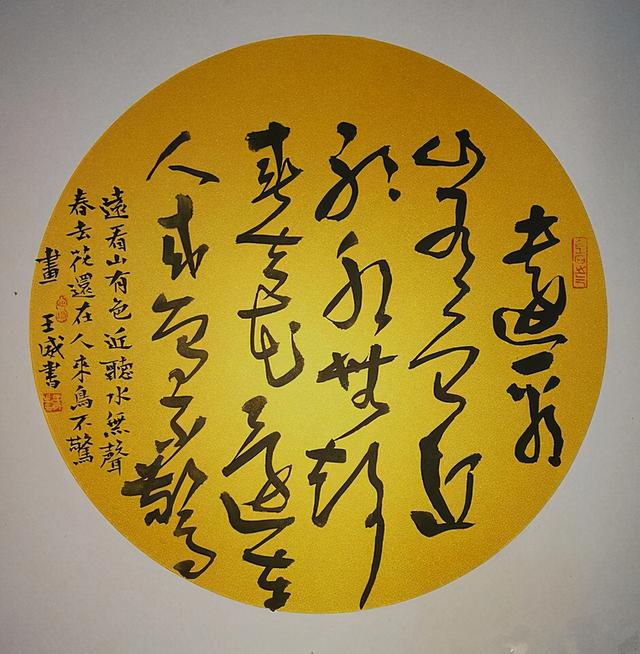 遠看
山有色近
聽水無聲
春去花還在
人來鳥不驚
遠看山有色近聽水無聲
春去花還在人來鳥不驚
畫 王威書